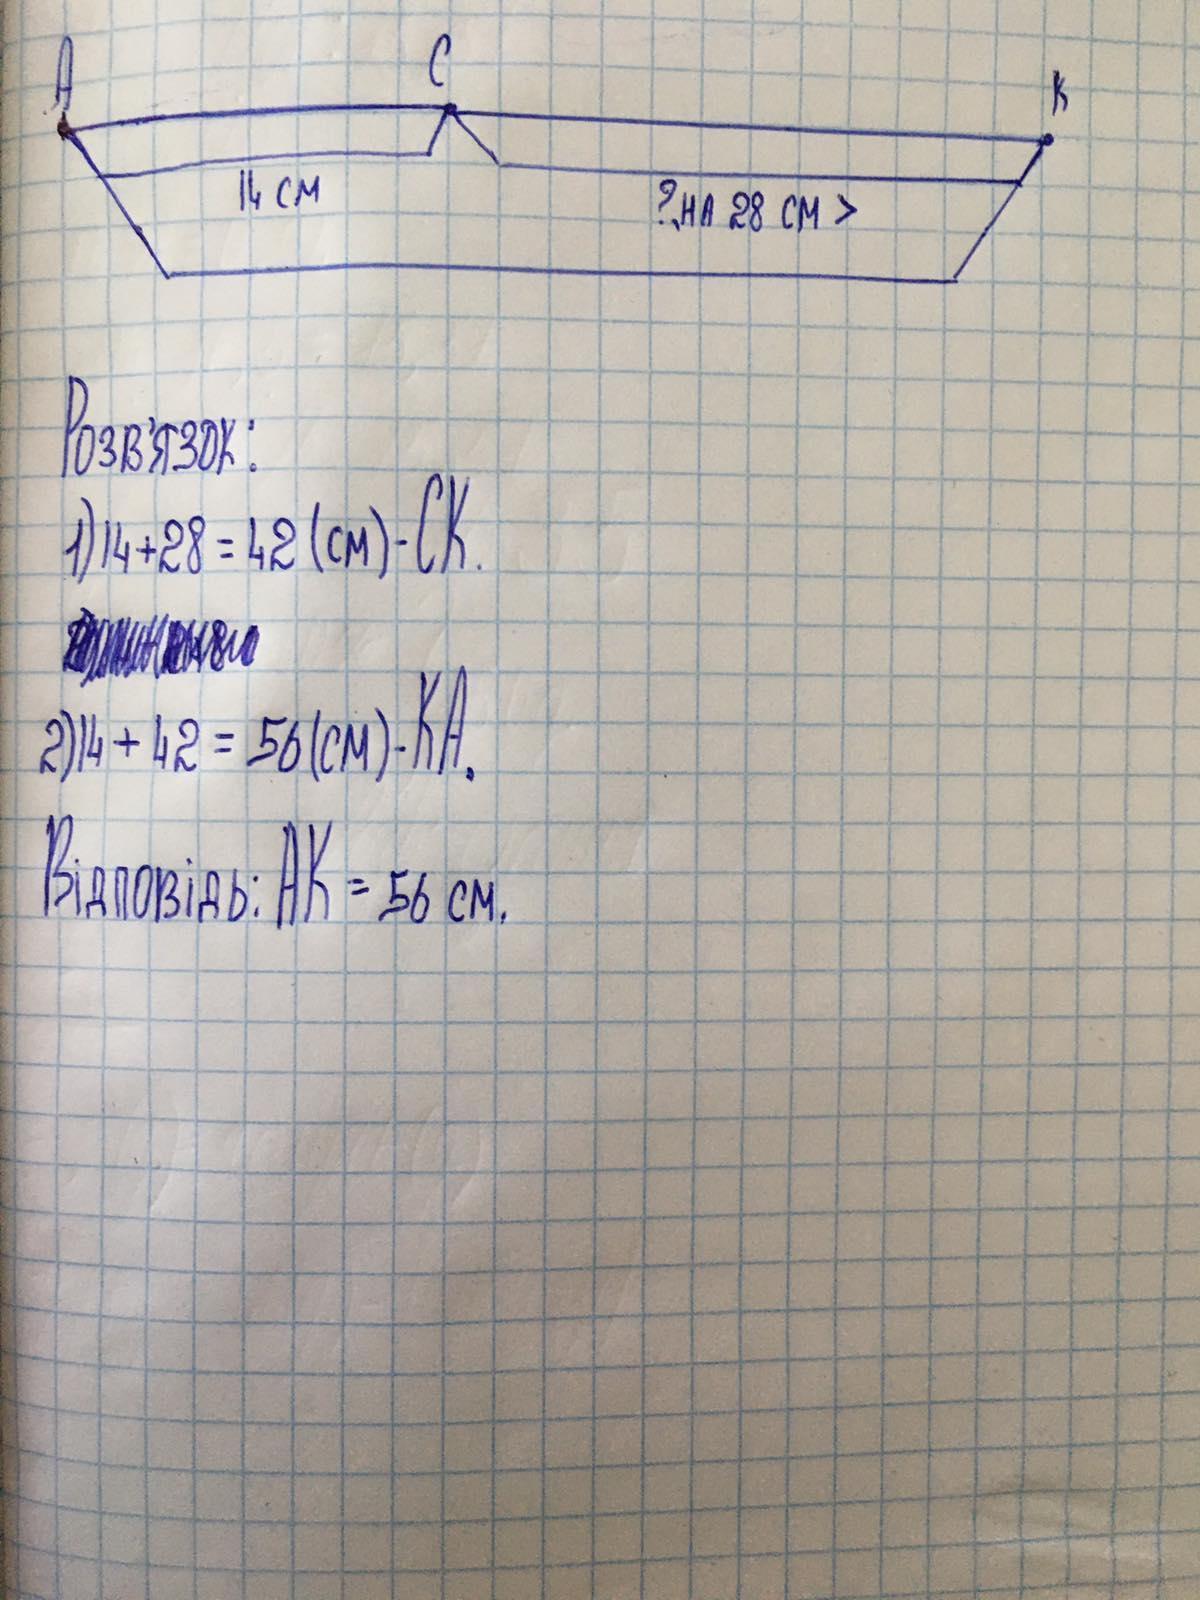 А С К
14 см ?, на 28 см >
Розв'язок:
1) 14 + 28 = 42 (см) - СК.
2) 14 + 42 = 56 (см) - КА.
Відповідь: АК = 56 см.